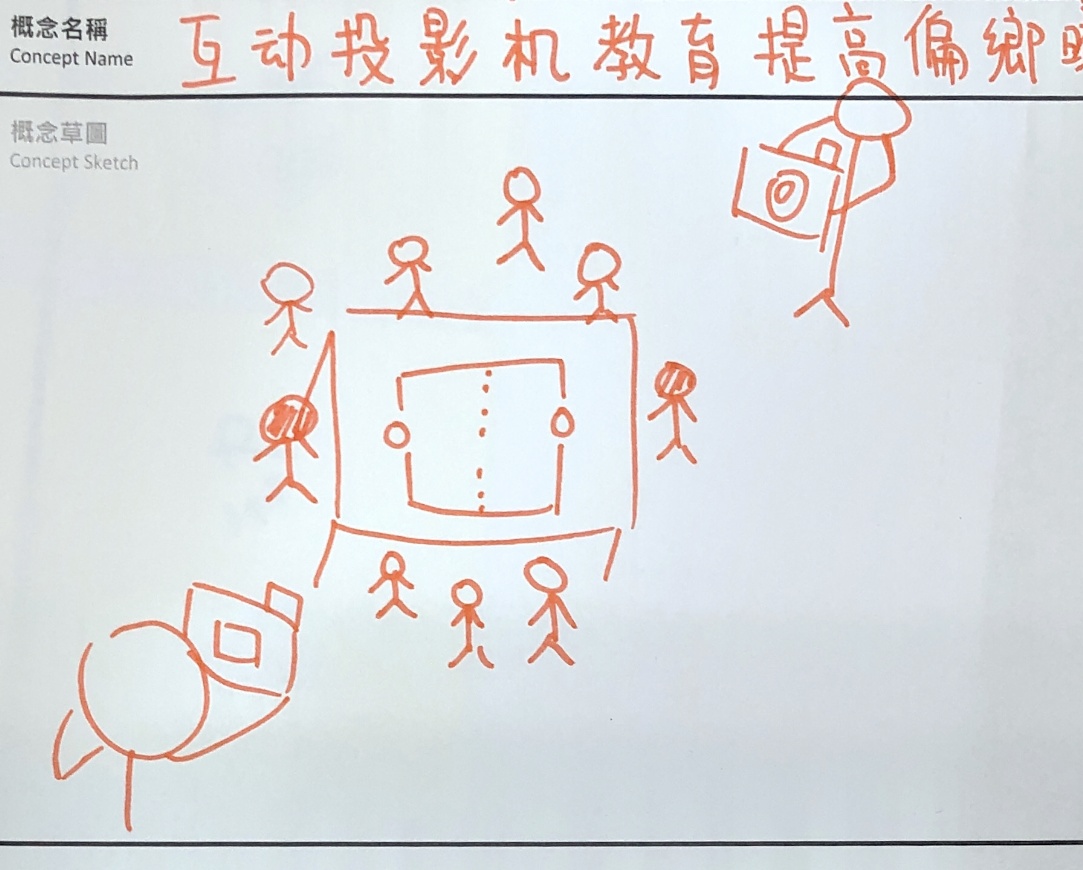 概念名稱
Concept Name
互动投影机教育提高偏鄉
概念草圖
Concept Sketch